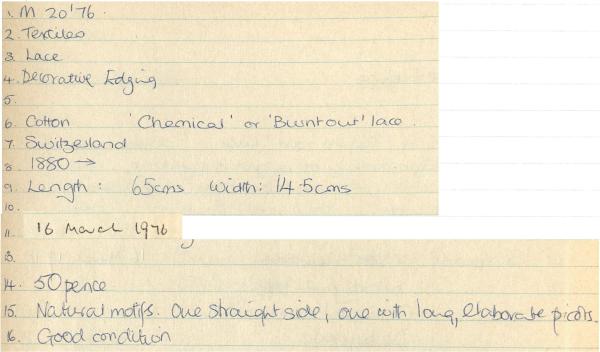 1. M 20'76.
2. Textiles
3. Lace
4. Decorative Edging
5.
6. Cotton 'Chemical' or 'Burntout' lace.
7. Switzerland
8. 1880 →
9. Length: 65cms Width: 14.5cms
10.
11. 16 March 1976
13.
14. 50 pence
15. Natural motifs. One straight side, one with long, elaborate picots.
16. Good condition